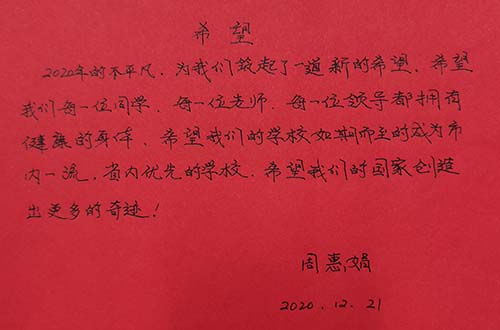 希望
2020年的不平凡，为我们筑起了一道新的希望，希望
我们每一位同学、每一位老师、每一位领导都拥有
健康的身体，希望我们的学校如期而至的成为市
内一流，省内优先的学校，希望我们的国家创造
出更多的奇迹！
周惠娟
2020.12.21